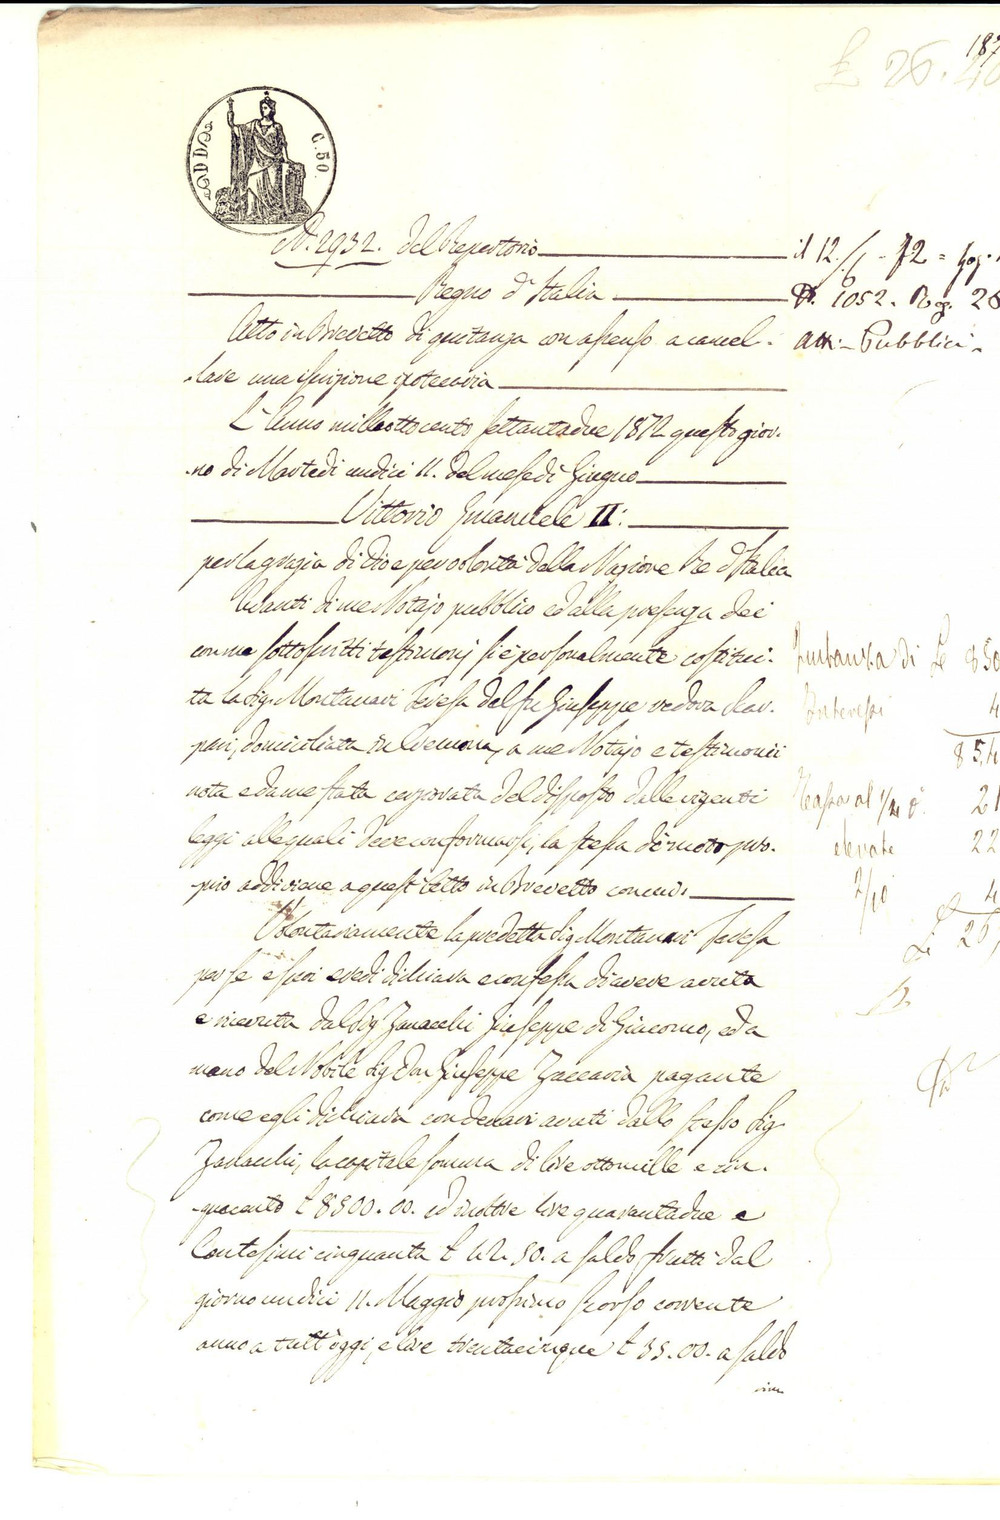 £ 26.40
187
C. 50
N.° 2932. del Repertorio
Regno d'Italia
Atto in Brevetto di quitanza con assenso a cancel-
-lare una iscrizione ipotecaria
L'Anno mille ottocento settantadue 1872 questo gior-
-no di Martedì undici 11. del mese di Giugno
Vittorio Emanuele II°
per la grazia di Dio e per volontà della Nazione Re d'Italia
Avanti di me Notajo pubblico ed alla presenza dei
con me sottoscritti testimonj si è personalmente costitui-
ta la Sig.a Montanari Teresa del fu Giuseppe vedova
domiciliata in Cremona, a me Notajo e testimonii
nota e da me stata cerziorata del disposto dalle vigenti
leggi alle quali deve conformarsi, la stessa di moto pro-
-prio addiviene a quest'atto in Brevetto con cui
Volontariamente la predetta Sig.a Montanari Teresa
per se e suoi eredi dichiara e confessa di avere avuta
e ricevuta dal Sig.r Zanacchi Giuseppe di Giacomo, ed a
mano del Nobile Sig.r Don Giuseppe Zaccaria pagante
come egli dichiara con denari avuti dallo stesso Sig.r
Zanacchi, la capitale somma di lire ottomille e cin-
-quecento £ 8500.00. ed inoltre lire quarantadue e
Centesimi cinquanta £ 42.50. a saldo frutti dal
giorno undici 11. Maggio prossimo scorso corrente
anno a tutt'oggi, e lire trentacinque £ 35.00. a saldo
il 12/6 - 72 =
N. 1052. Reg. 26
Atti Pubblici
Quitanza di £ 850
Interessi 4
854
Tassa al 1/4 % 21
elevate 22
2/10 4
£ 26